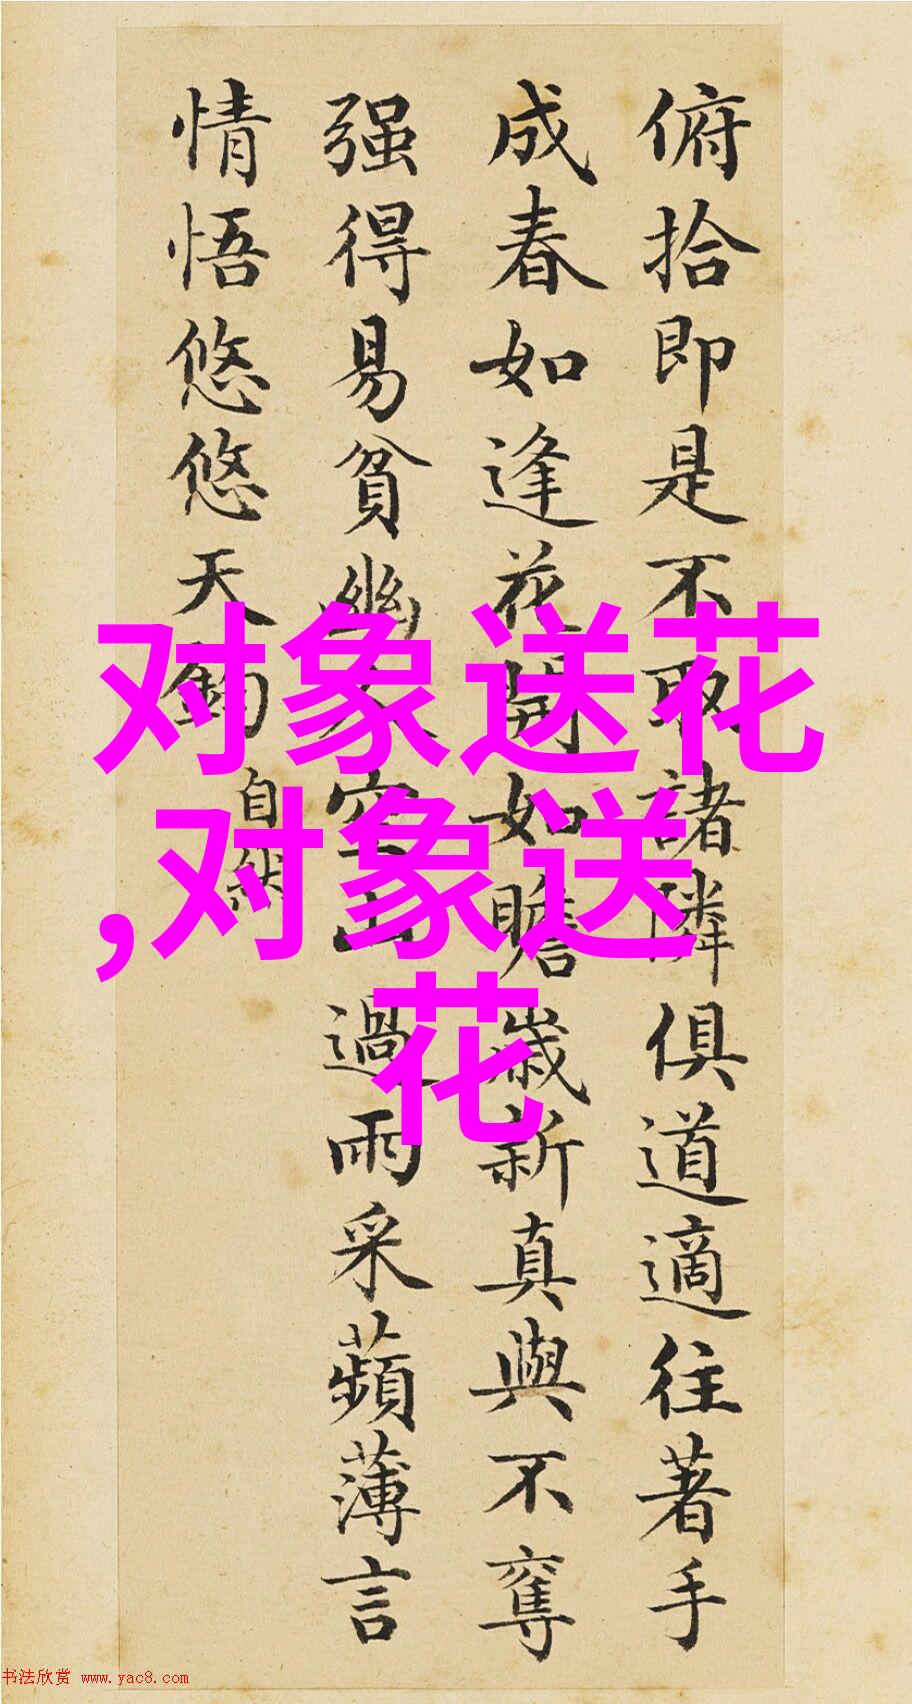 俯拾即是不取諸隣俱道適往著手
成春如逢花開如瞻歲新真與不奪
强得易貧幽人空山過雨采蘋薄言
情悟悠悠天鈞
自然
对象送花
,对象送
花
书法欣赏 www.yac8.com